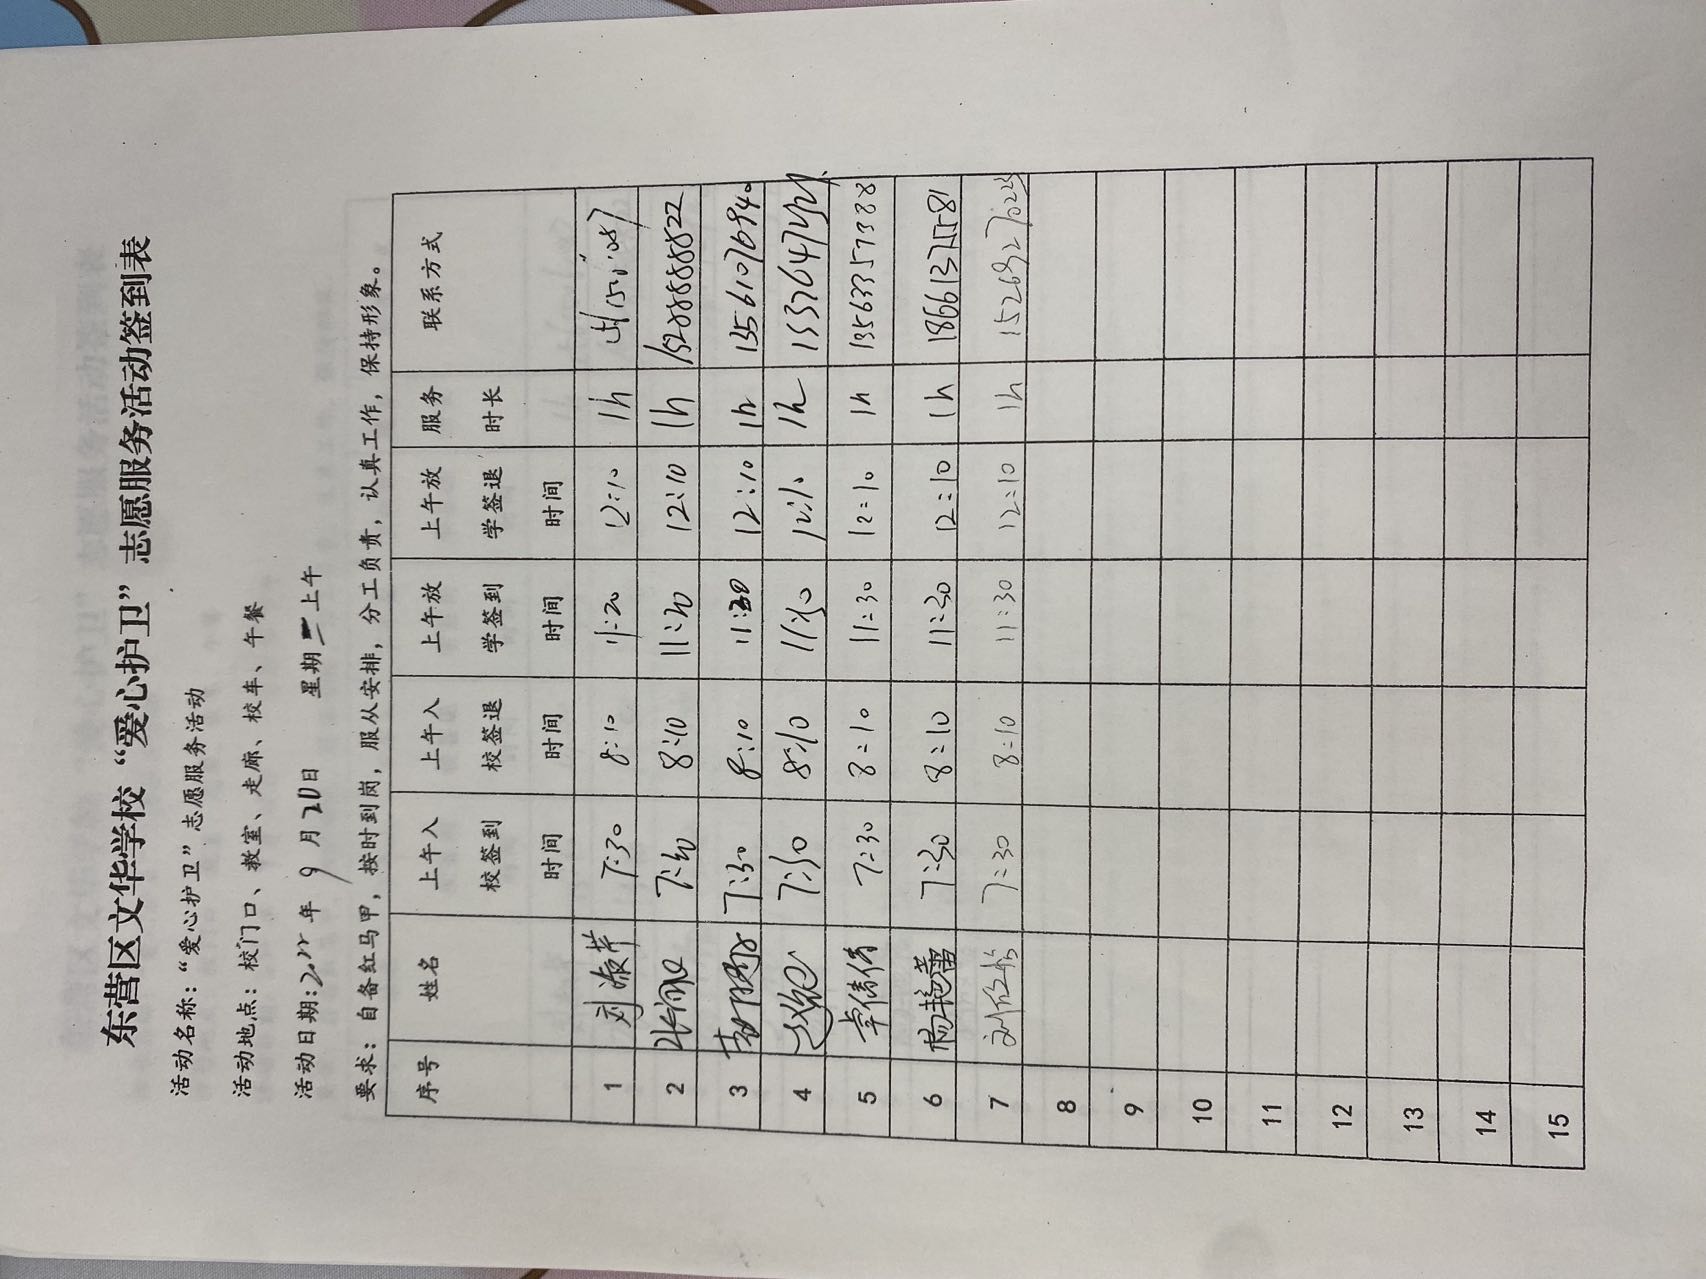 东营区文华学校“爱心护卫”志愿服务活动签到表
活动名称：“爱心护卫”志愿服务活动
活动地点：校门口、教室、走廊、校车、午餐
活动日期：2022年 9月20日 星期二上午
要求：自备红马甲，按时到岗，服从安排，分工负责，认真工作，保持形象。
序号 姓名 上午入校签到时间 上午入校签退时间 上午放学签到时间 上午放学签退时间 服务时长 联系方式
1 刘淑芹 7:30 8:10 11:20 12:10 1h
2 7:30 8:10 11:30 12:10 1h 15288888822
3 7:30 8:10 11:30 12:10 1h 13561076940
4 7:30 8:10 11:30 12:10 1h
5 卓倩倩 7:30 8:10 11:30 12:10 1h 13563357388
6 杨艳蕾 7:30 8:10 11:30 12:10 1h 18661375581
7 7:30 8:10 11:30 12:10 1h
8
9
10
11
12
13
14
15